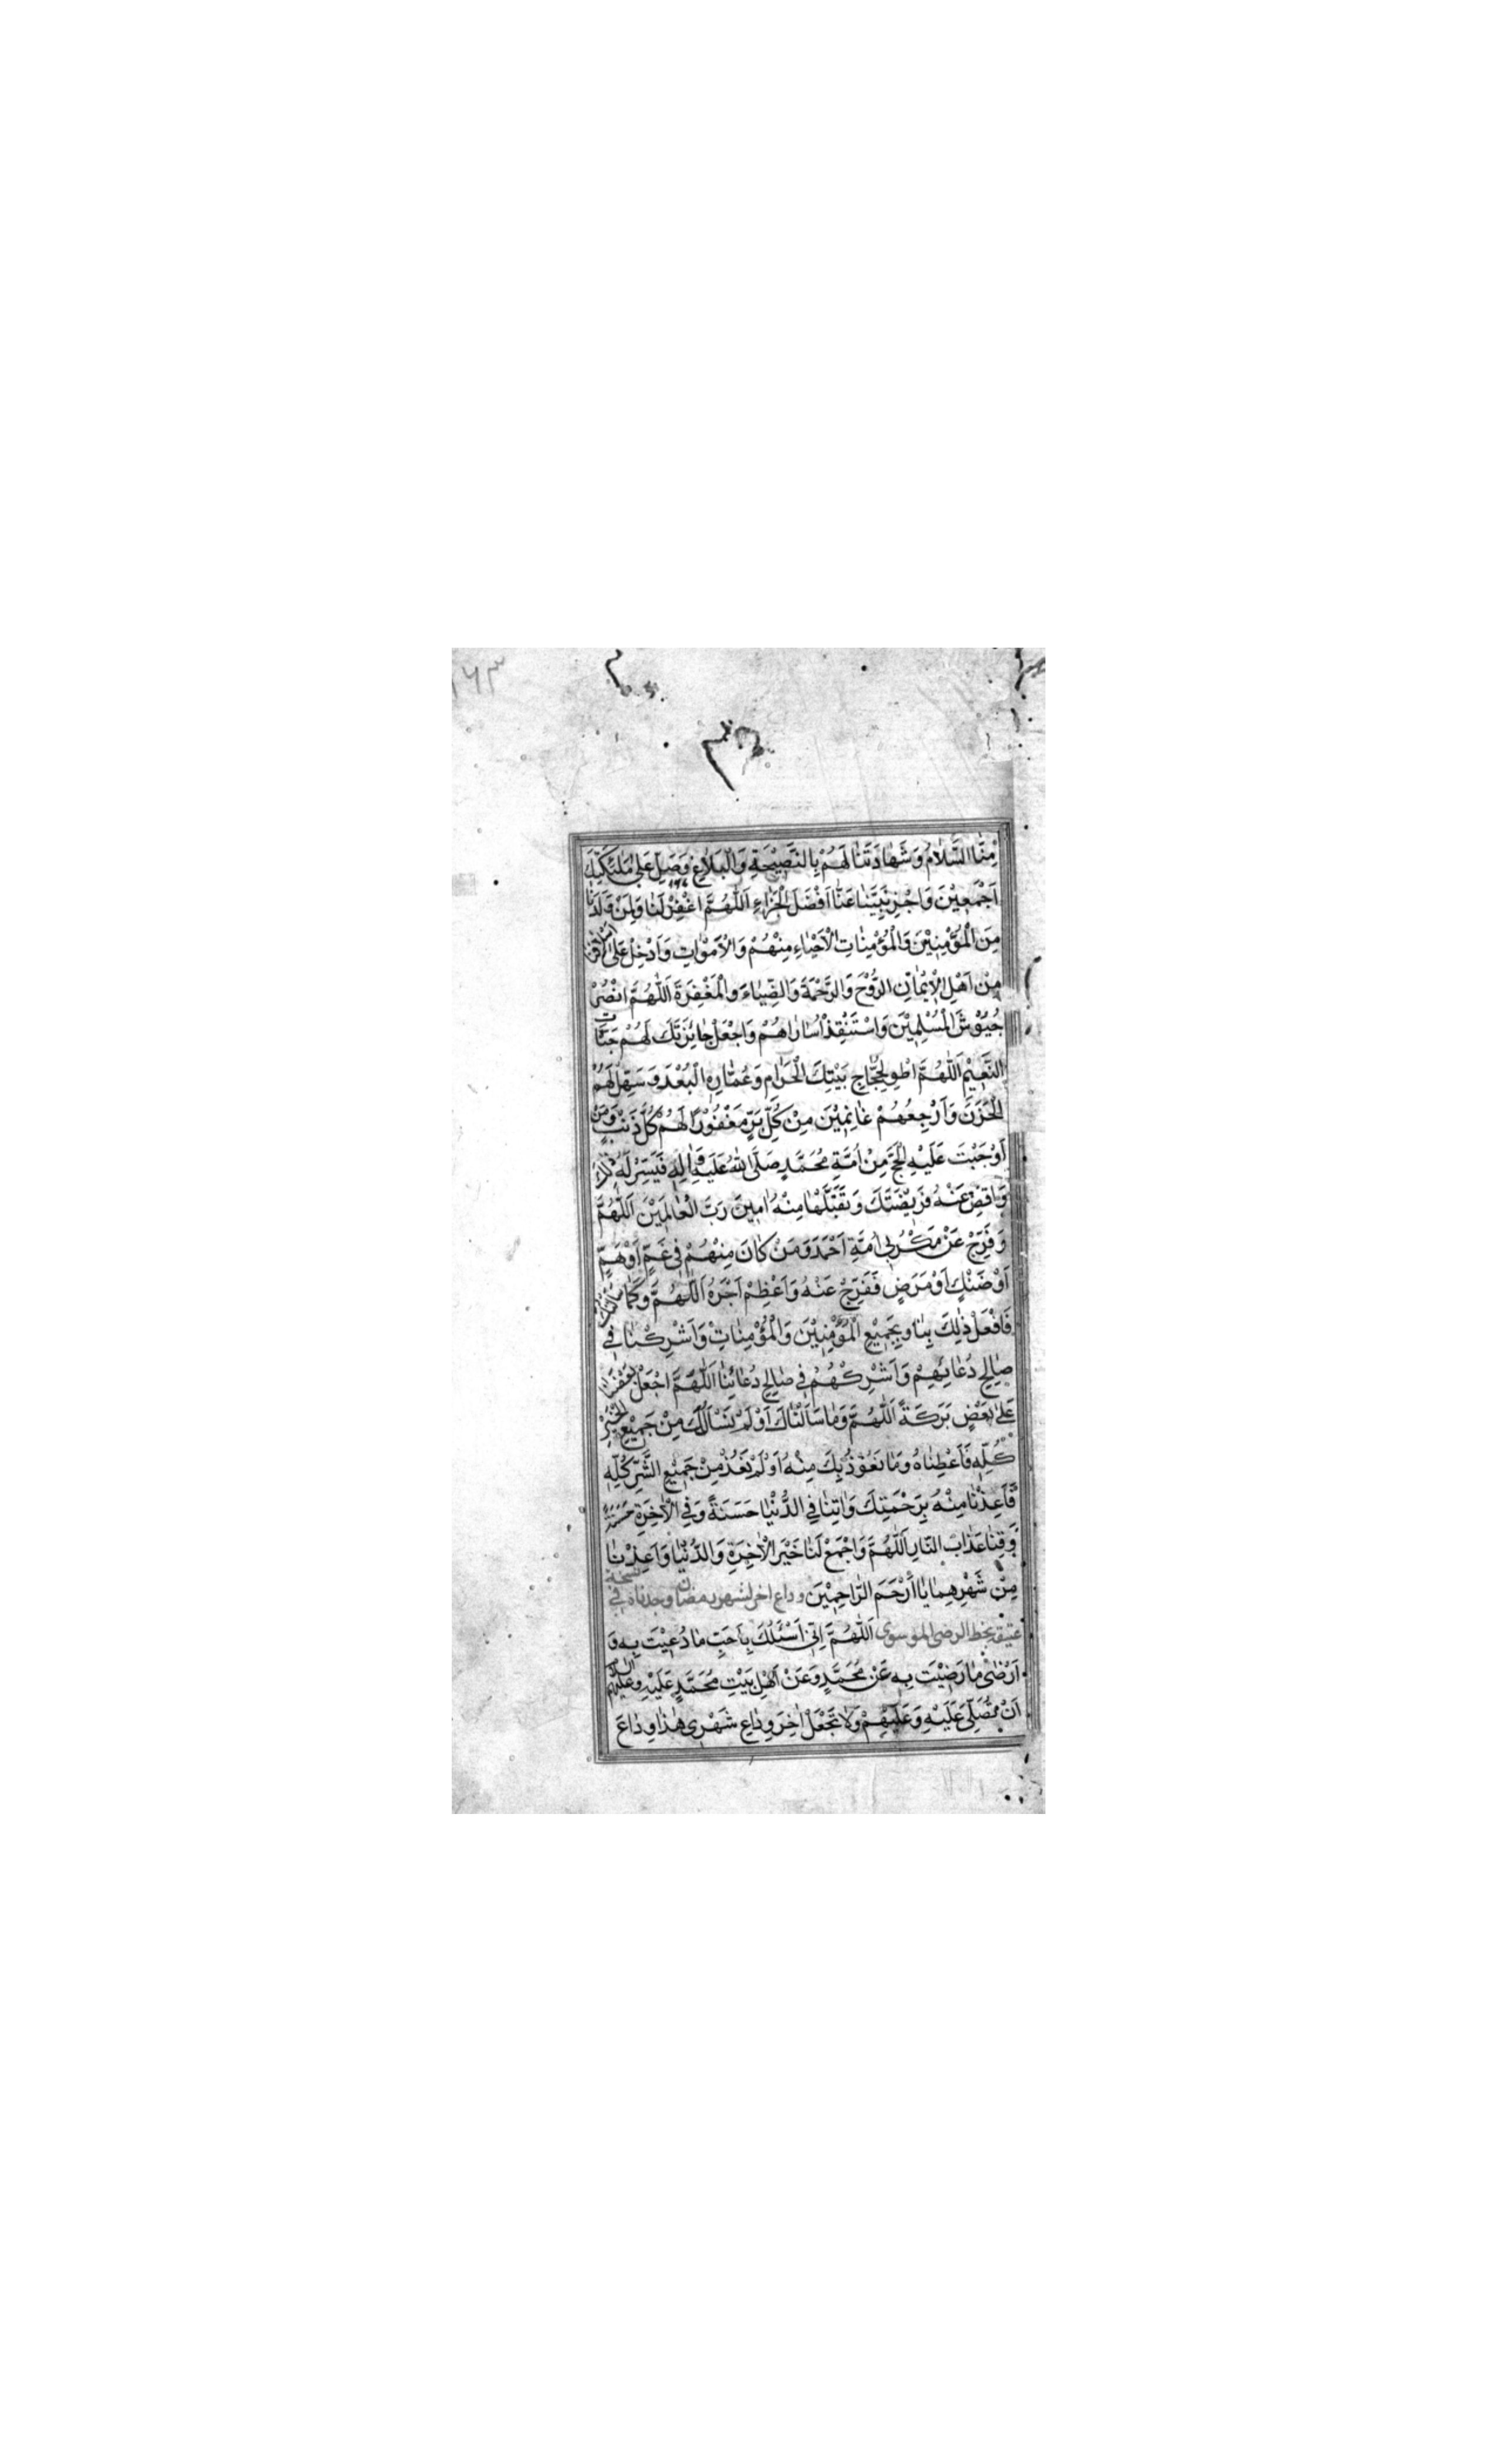 ١٦٣
مِنَّا السَّلَامُ وَشَهَادَتَنَا لَهُمْ بِالنَّصِيْحَةِ وَالْبَلَاغِ وَصَلِّ عَلَى مَلٰئِكَتِكَ
اَجْمَعِيْنَ وَاَجْزِ نَبِيَّنَا عَنَّا اَفْضَلَ الْجَزَاءِ اَللّٰهُمَّ اغْفِرْ لَنَا وَلِمَنْ وَلَدَنَا
مِنَ الْمُؤْمِنِيْنَ وَالْمُؤْمِنَاتِ الْاَحْيَاءِ مِنْهُمْ وَالْاَمْوَاتِ وَاَدْخِلْ عَلَى
مِنْ اَهْلِ الْاِيْمَانِ الرَّوْحَ وَالرَّحْمَةَ وَالضِّيَاءَ وَالْمَغْفِرَةَ اَللّٰهُمَّ انْصُرْ
جُيُوْشَ الْمُسْلِمِيْنَ وَاسْتَنْقِذْ اُسَارَاهُمْ وَاجْعَلْ جَائِزَتَكَ لَهُمْ جَنَّاتِ
النَّعِيْمِ اَللّٰهُمَّ اطْوِ لِحُجَّاجِ بَيْتِكَ الْحَرَامِ وَعُمَّارِهِ الْبُعْدَ وَسَهِّلْ لَهُمُ
الْحَزَنَ وَاَرْجِعْهُمْ غَانِمِيْنَ مِنْ كُلِّ بَرٍّ مَغْفُوْرًا لَهُمْ كُلُّ ذَنْبٍ وَمَنْ
اَوْجَبْتَ عَلَيْهِ الْحَجَّ مِنْ اُمَّةِ مُحَمَّدٍ صَلَّى اللّٰهُ عَلَيْهِ وَاٰلِهِ فَيَسِّرْ لَهُ ذٰلِكَ
وَاقْضِ عَنْهُ فَرِيْضَتَكَ وَتَقَبَّلْهَا مِنْهُ اٰمِيْنَ رَبَّ الْعَالَمِيْنَ اَللّٰهُمَّ
وَفَرِّجْ عَنْ مَكْرُبِي اُمَّةِ اَحْمَدَ وَمَنْ كَانَ مِنْهُمْ فِي غَمٍّ اَوْ هَمٍّ
اَوْ ضَنْكٍ اَوْ مَرَضٍ فَفَرِّجْ عَنْهُ وَاَعْظِمْ اَجْرَهُ اَللّٰهُمَّ وَكَمَا سَاَلْتُكَ
فَافْعَلْ ذٰلِكَ بِنَا وَبِجَمِيْعِ الْمُؤْمِنِيْنَ وَالْمُؤْمِنَاتِ وَاَشْرِكْنَا فِي
صَالِحِ دُعَائِهِمْ وَاَشْرِكْهُمْ فِي صَالِحِ دُعَائِنَا اَللّٰهُمَّ اجْعَلْ بَعْضَنَا
عَلَى بَعْضٍ بَرَكَةً اَللّٰهُمَّ وَمَا سَاَلْنَاكَ اَوْ لَمْ نَسْاَلْكَ مِنْ جَمِيْعِ الْخَيْرِ
كُلِّهِ فَاَعْطِنَاهُ وَمَا نَعُوْذُ بِكَ مِنْهُ اَوْ لَمْ نَعُذْ مِنْ جَمِيْعِ الشَّرِّ كُلِّهِ
فَاَعِذْنَا مِنْهُ بِرَحْمَتِكَ وَاٰتِنَا فِي الدُّنْيَا حَسَنَةً وَفِي الْاٰخِرَةِ حَسَنَةً
وَقِنَا عَذَابَ النَّارِ اَللّٰهُمَّ وَاجْمَعْ لَنَا خَيْرَ الْاٰخِرَةِ وَالدُّنْيَا وَاَعِذْنَا
مِنْ شَهْرِهِمَا يَا اَرْحَمَ الرَّاحِمِيْنَ وداع اخر لشهر رمضان وجدناه في نسخة
عتيقة بخط الرضي الموسوي اَللّٰهُمَّ اِنِّي اَسْئَلُكَ بِاَحَبِّ مَا دُعِيْتَ بِهِ وَ
اَرْضَى مَا رَضِيْتَ بِهِ عَنْ مُحَمَّدٍ وَعَنْ اَهْلِ بَيْتِ مُحَمَّدٍ عَلَيْهِ وَعَلَيْهِمُ السلام
اَنْ تُصَلِّيَ عَلَيْهِ وَعَلَيْهِمْ وَلَا تَجْعَلْ اٰخِرَ وِدَاعِ شَهْرِي هٰذَا وِدَاعَ